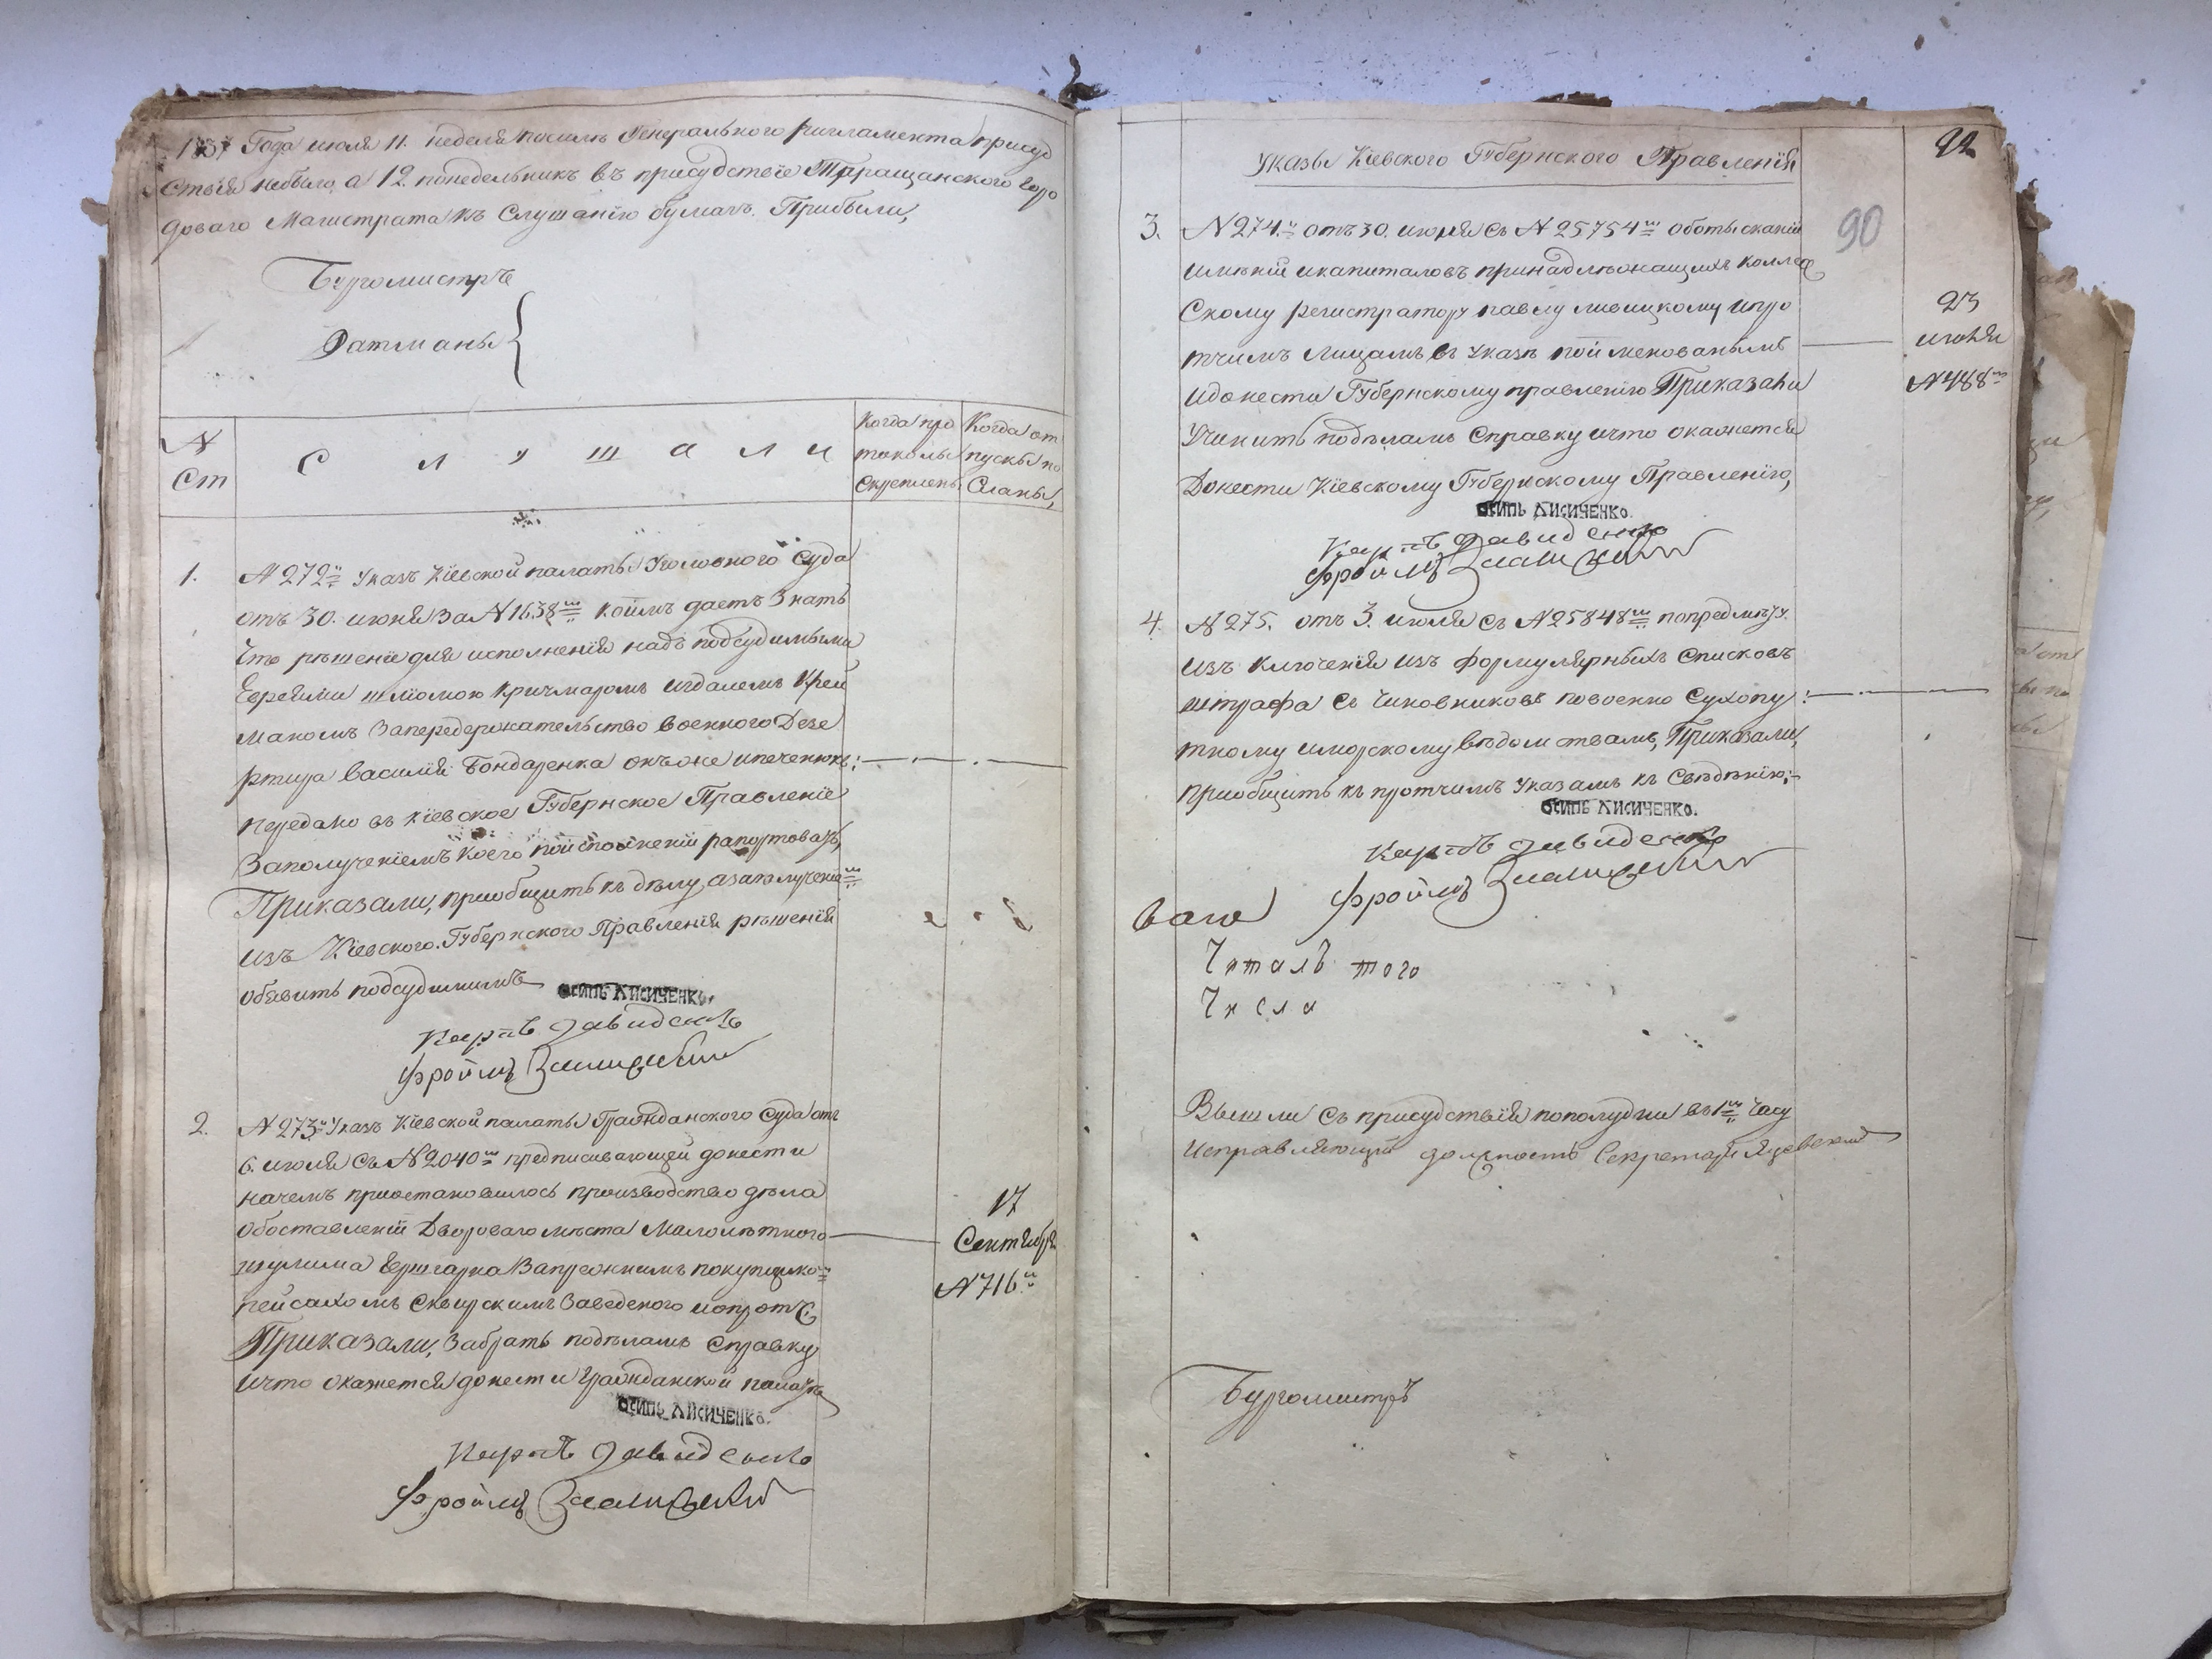 1837 Года июля 11. неделя посилѣ Генерального регламента присуд
ствія небыло, а 12 понедельникъ въ присудствіе Таращанского горо
доваго Магистрата къ слушанію бумагъ. Прибыли,
Бургомистръ
Ратманы
N Ст
Слушали
Когда протоколы скреплены
Когда отпуски посланы,
1. N 272й Указъ Кіевской палаты Уголовного Суда
отъ 30. июня за N 1638мъ коимъ даетъ знать
что рѣшеніе для исполненія надъ подсудимыми
Евреями шломою кричмаромъ
маномъ Запередержательство военного Дезе
ртира василія Бондаренка онъже ипеченюкъ:
передано въ кіевское Губернское Правленіе
Заполученіемъ коего поисполненіи рапортовать,
Приказали, приобщить къ дѣлу, азаполученіемъ
изъ Кіевского Губернского Правленія рѣшенія
обявить подсудимимъ
Осипъ Лисиченко.
Карпъ Давиденко
Фроимъ
2. N 273й Указъ Кіевской палаты Гражданского Суда отъ
6. июля съ N 2040мъ предписывающей донести
начемъ приостановилось производство дѣла
обоставленіи Двороваго мѣста Малолѣтного
шулима Ершгарна Запрежнимъ покупщикомъ
пейсахомъ Сквирскимъ Заведеного ипротч
Приказали, Забрать подѣламъ справку
ичто окажется донести Гражданской палатѣ
17
Сентября
N 716й
Осипъ Лисиченко.
Карпъ Давиденко
Фроимъ
22
90
Указы Кіевского Губернского Правленія
3. N 274й отъ 30. июня съ N 25754мъ оботысканіи
имѣній икапиталовъ принадлежащихъ коллеж
скому регистратору павлу ливицкому ипро
тчимъ лицамъ въ указѣ поименованымъ
идонести Губернскому правленію Приказали
Учинить подѣламъ Справку ичто окажется
Донести Кіевскому Губернскому Правленію,
23
июля
N 488мъ
Осипъ Лисиченко.
Карпъ Давиденко
Фроимъ
4. N 275. отъ 3. июля съ N 25848мъ попредмѣту.
изъ ключенія изъ формулярныхъ Списковъ
штрафа съ чиновниковъ повоенно Сухопу:
тному иморскому вѣдомствамъ, Приказали,
приобщить къ протчимъ указамъ къ Свѣдѣнію;
Осипъ Лисиченко.
Карпъ Давиденко
Фроимъ
ваго
Читалъ того
Числа
Вышли съ присудствія пополудни въ 1мъ часу
Исправляющій должность Секретаря
Бургомистръ